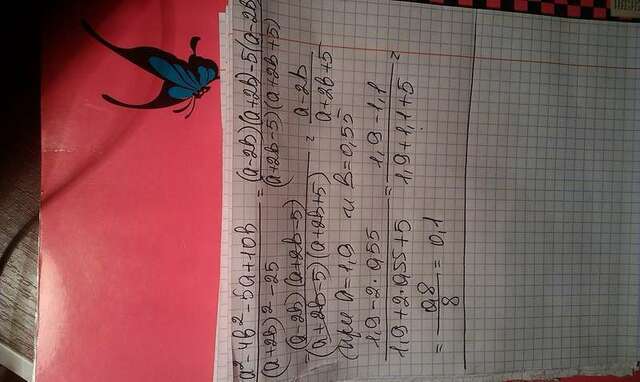 a² - 4b² - 5a + 10b / (a+2b)² - 25 = (a-2b)(a+2b) - 5(a-2b) / (a+2b-5)(a+2b+5)
(a-2b)(a+2b-5) / (a+2b-5)(a+2b+5) = a-2b / a+2b+5
(при a=1,9 и B=0,55
1,9 - 2·0,55 / 1,9+2·0,55+5 = 1,9-1,1 / 1,9+1,1+5 =
= 0,8 / 8 = 0,1